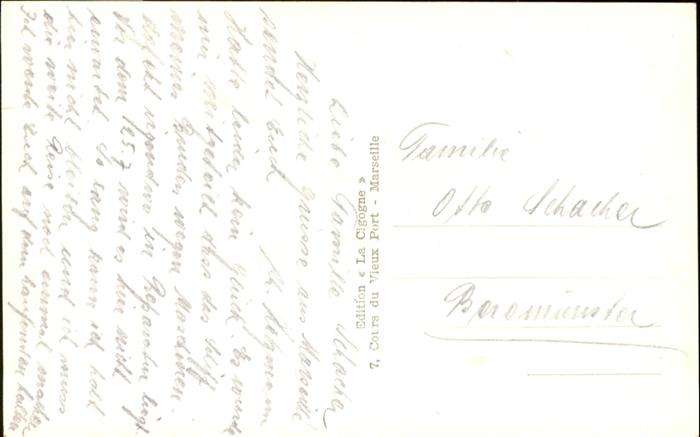 Liebe Familie Schacher
Herzliche Grüsse aus Marseille
sendet Euch
Hatte leider kein Glück. Es wurde
mir mitgeteilt dass das Schiff
meines Bruders wegen Maschinen-
defekt irgendwo in Reparatur liegt
Vor dem 1957 wird es hier nicht
erwartet. So lang kann ich halt
hier nicht bleiben und ich muss
die weite Reise noch einmal machen
Ich werde Euch auf dem laufenden halten
Edition « La Cigogne »
7, Cours du Vieux Port - Marseille
Familie
Otto Schacher
Beromünster